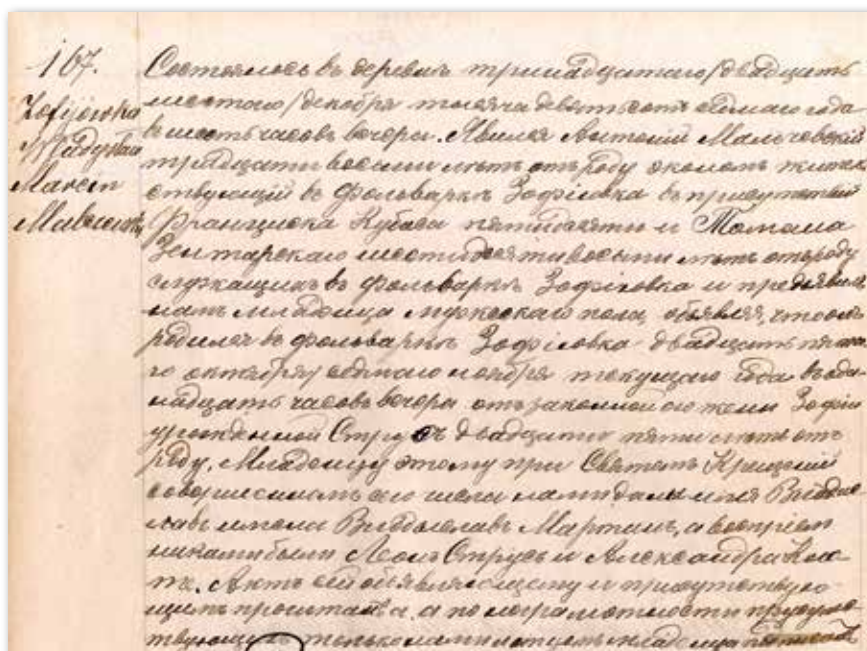 167.
Zofijówka
Władysław
Marcin
Malczewski
Состоялось въ деревнѣ тринадцатаго/двадцать
шестого/декабря тысяча девятьсотъ седьмаго года
въ шесть часовъ вечера. Явился Антоній Мальчевскій
тридцати восьми лѣтъ отъ роду экономъ житель
ствующій въ фольваркѣ Зофіовка въ присутствіи
Францишка Кубаса пятидесяти и Томаша
шестидесяти восьми лѣтъ отъ роду
служащихъ въ фольваркѣ Зофіовка и предъявилъ
намъ младенца мужескаго пола, объявляя, что онъ
родился въ фольваркѣ Зофіовка двадцать пята
го октября/седьмаго ноября текущаго года въ оди
надцать часовъ вечера отъ законной его жены Зофіи
урожденной Струсъ двадцати пяти лѣтъ отъ
роду. Младенцу этому при Святомъ Крещеніи
совершенномъ сего числа нами даны имя
имена Владыславъ Мартинъ, а воспріем
никами были Леонъ Струсь и Александра
Актъ сей объявляющему и присутствую-
щимъ прочитанъ, а по неграмотности присутс
твующихъ только нами и отцемъ младенца подписанъ